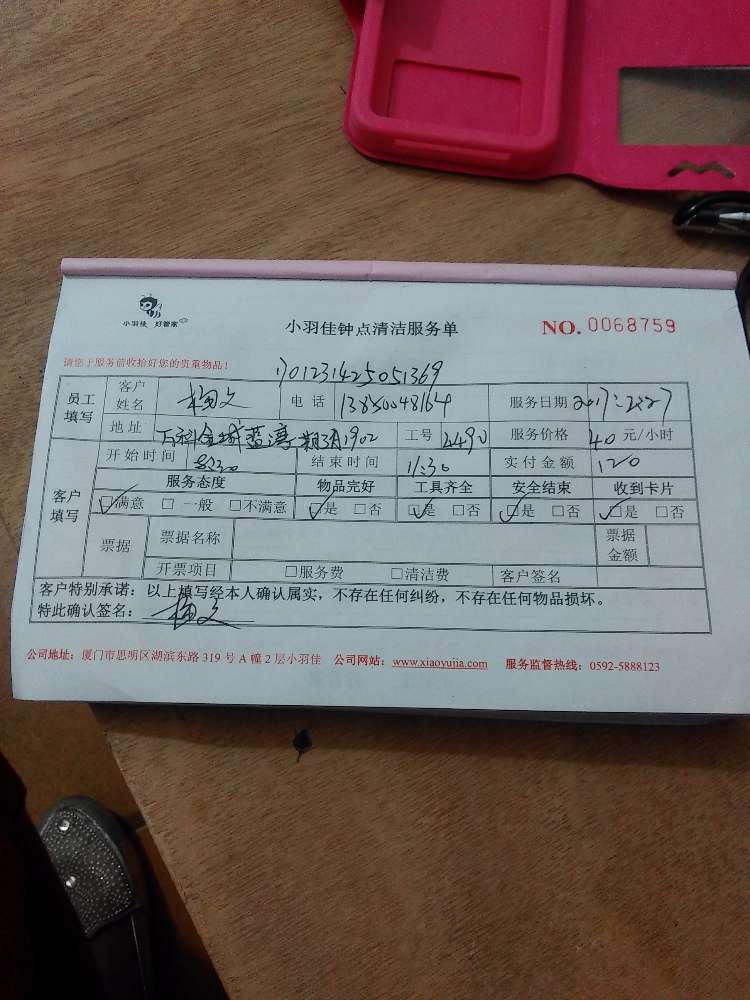 小羽佳 好管家
小羽佳钟点清洁服务单 NO. 0068759
请您于服务前收拾好您的贵重物品!
员工填写 客户姓名 电话 13850048164 服务日期
地址 万科金域蓝湾 1902 工号 2490 服务价格 40 元/小时
客户填写 开始时间 结束时间 11:30 实付金额 120
服务态度 物品完好 工具齐全 安全结束 收到卡片
☑满意 □一般 □不满意 ☑是 □否 ☑是 □否 ☑是 □否 ☑是 □否
票据 票据名称 票据金额
开票项目 □服务费 □清洁费 客户签名
客户特别承诺:以上填写经本人确认属实,不存在任何纠纷,不存在任何物品损坏。
特此确认签名:
公司地址:厦门市思明区湖滨东路 319 号 A 幢 2 层小羽佳 公司网站:www.xiaoyujia.com 服务监督热线:0592-5888123